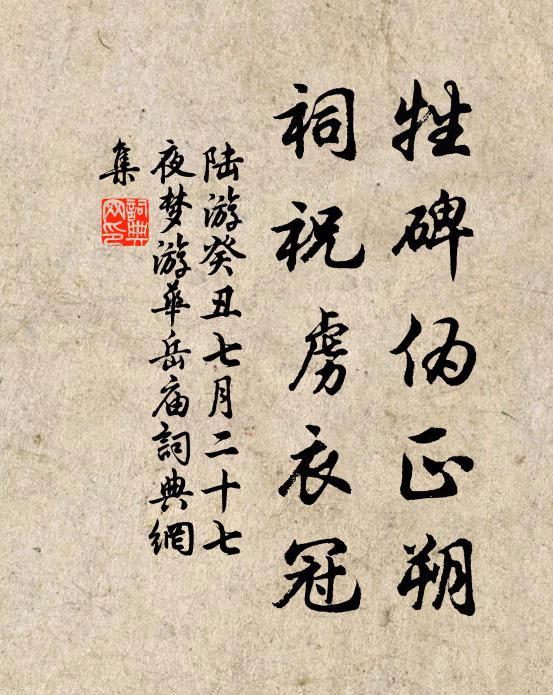 牲碑伪正朔
祠祝虏衣冠
陆游癸丑七月二十七
夜梦游華岳庙詞典網
集
詞典网印